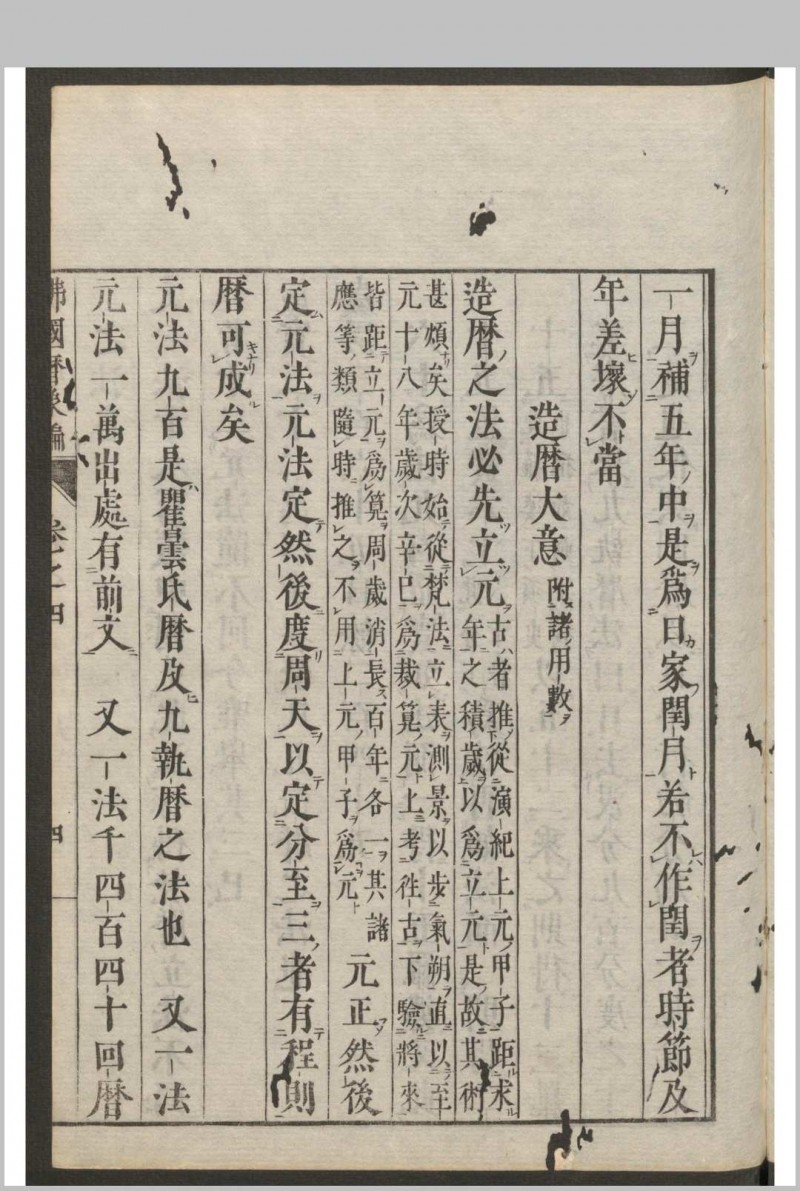 一月補五年中是爲日家閏月若不作閏者時節及
年差壞不當
造暦大意 附諸用數
造暦之法必先立元 古者推從演紀上元甲子距求
年之積歲以爲立元是故其術
甚煩矣授時始從梵法立表測景以步氣朔直以至
元十八年歲次辛巳爲裁筭元上考徃古下驗將來
皆距立元爲筭周歲消長百年各一其諸
應等類隨時推之不用上元甲子爲元 元正然後
定元法元法定然後度周天以定分至三者有程則
暦可成矣
元法九百是瞿曇氏暦及九執暦之法也 又一法
元法一萬出處有前文 又一法千四百四十回暦
佛國暦象編 卷之四 四